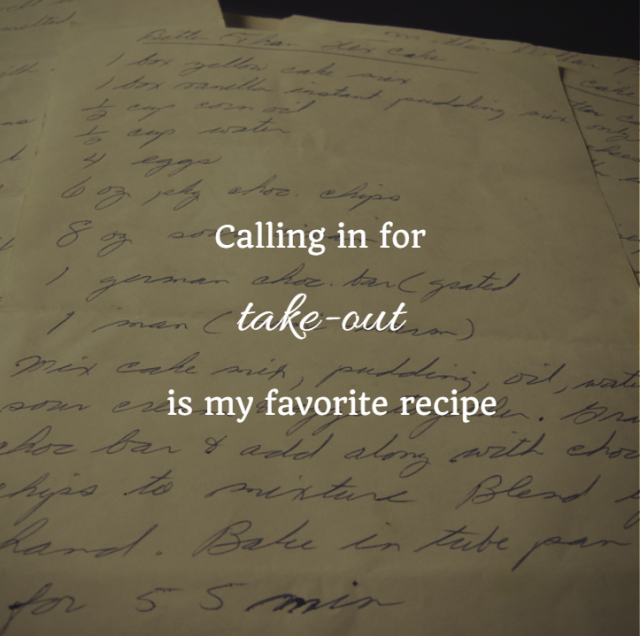 Better Than Sex Cake
1 box yellow cake mix
1 box vanilla instant pudding mix
½ cup corn oil
½ cup water
4 eggs
6 oz pkg choc. chips
8 oz
Calling in for
1 german choc. bar (grated
take-out
1 man (
Mix cake mix, pudding, oil, wat
is my favorite recipe
sour
choc bar & add along with choc
chips to mixture Blend
hand. Bake in tube pan
for 55 min